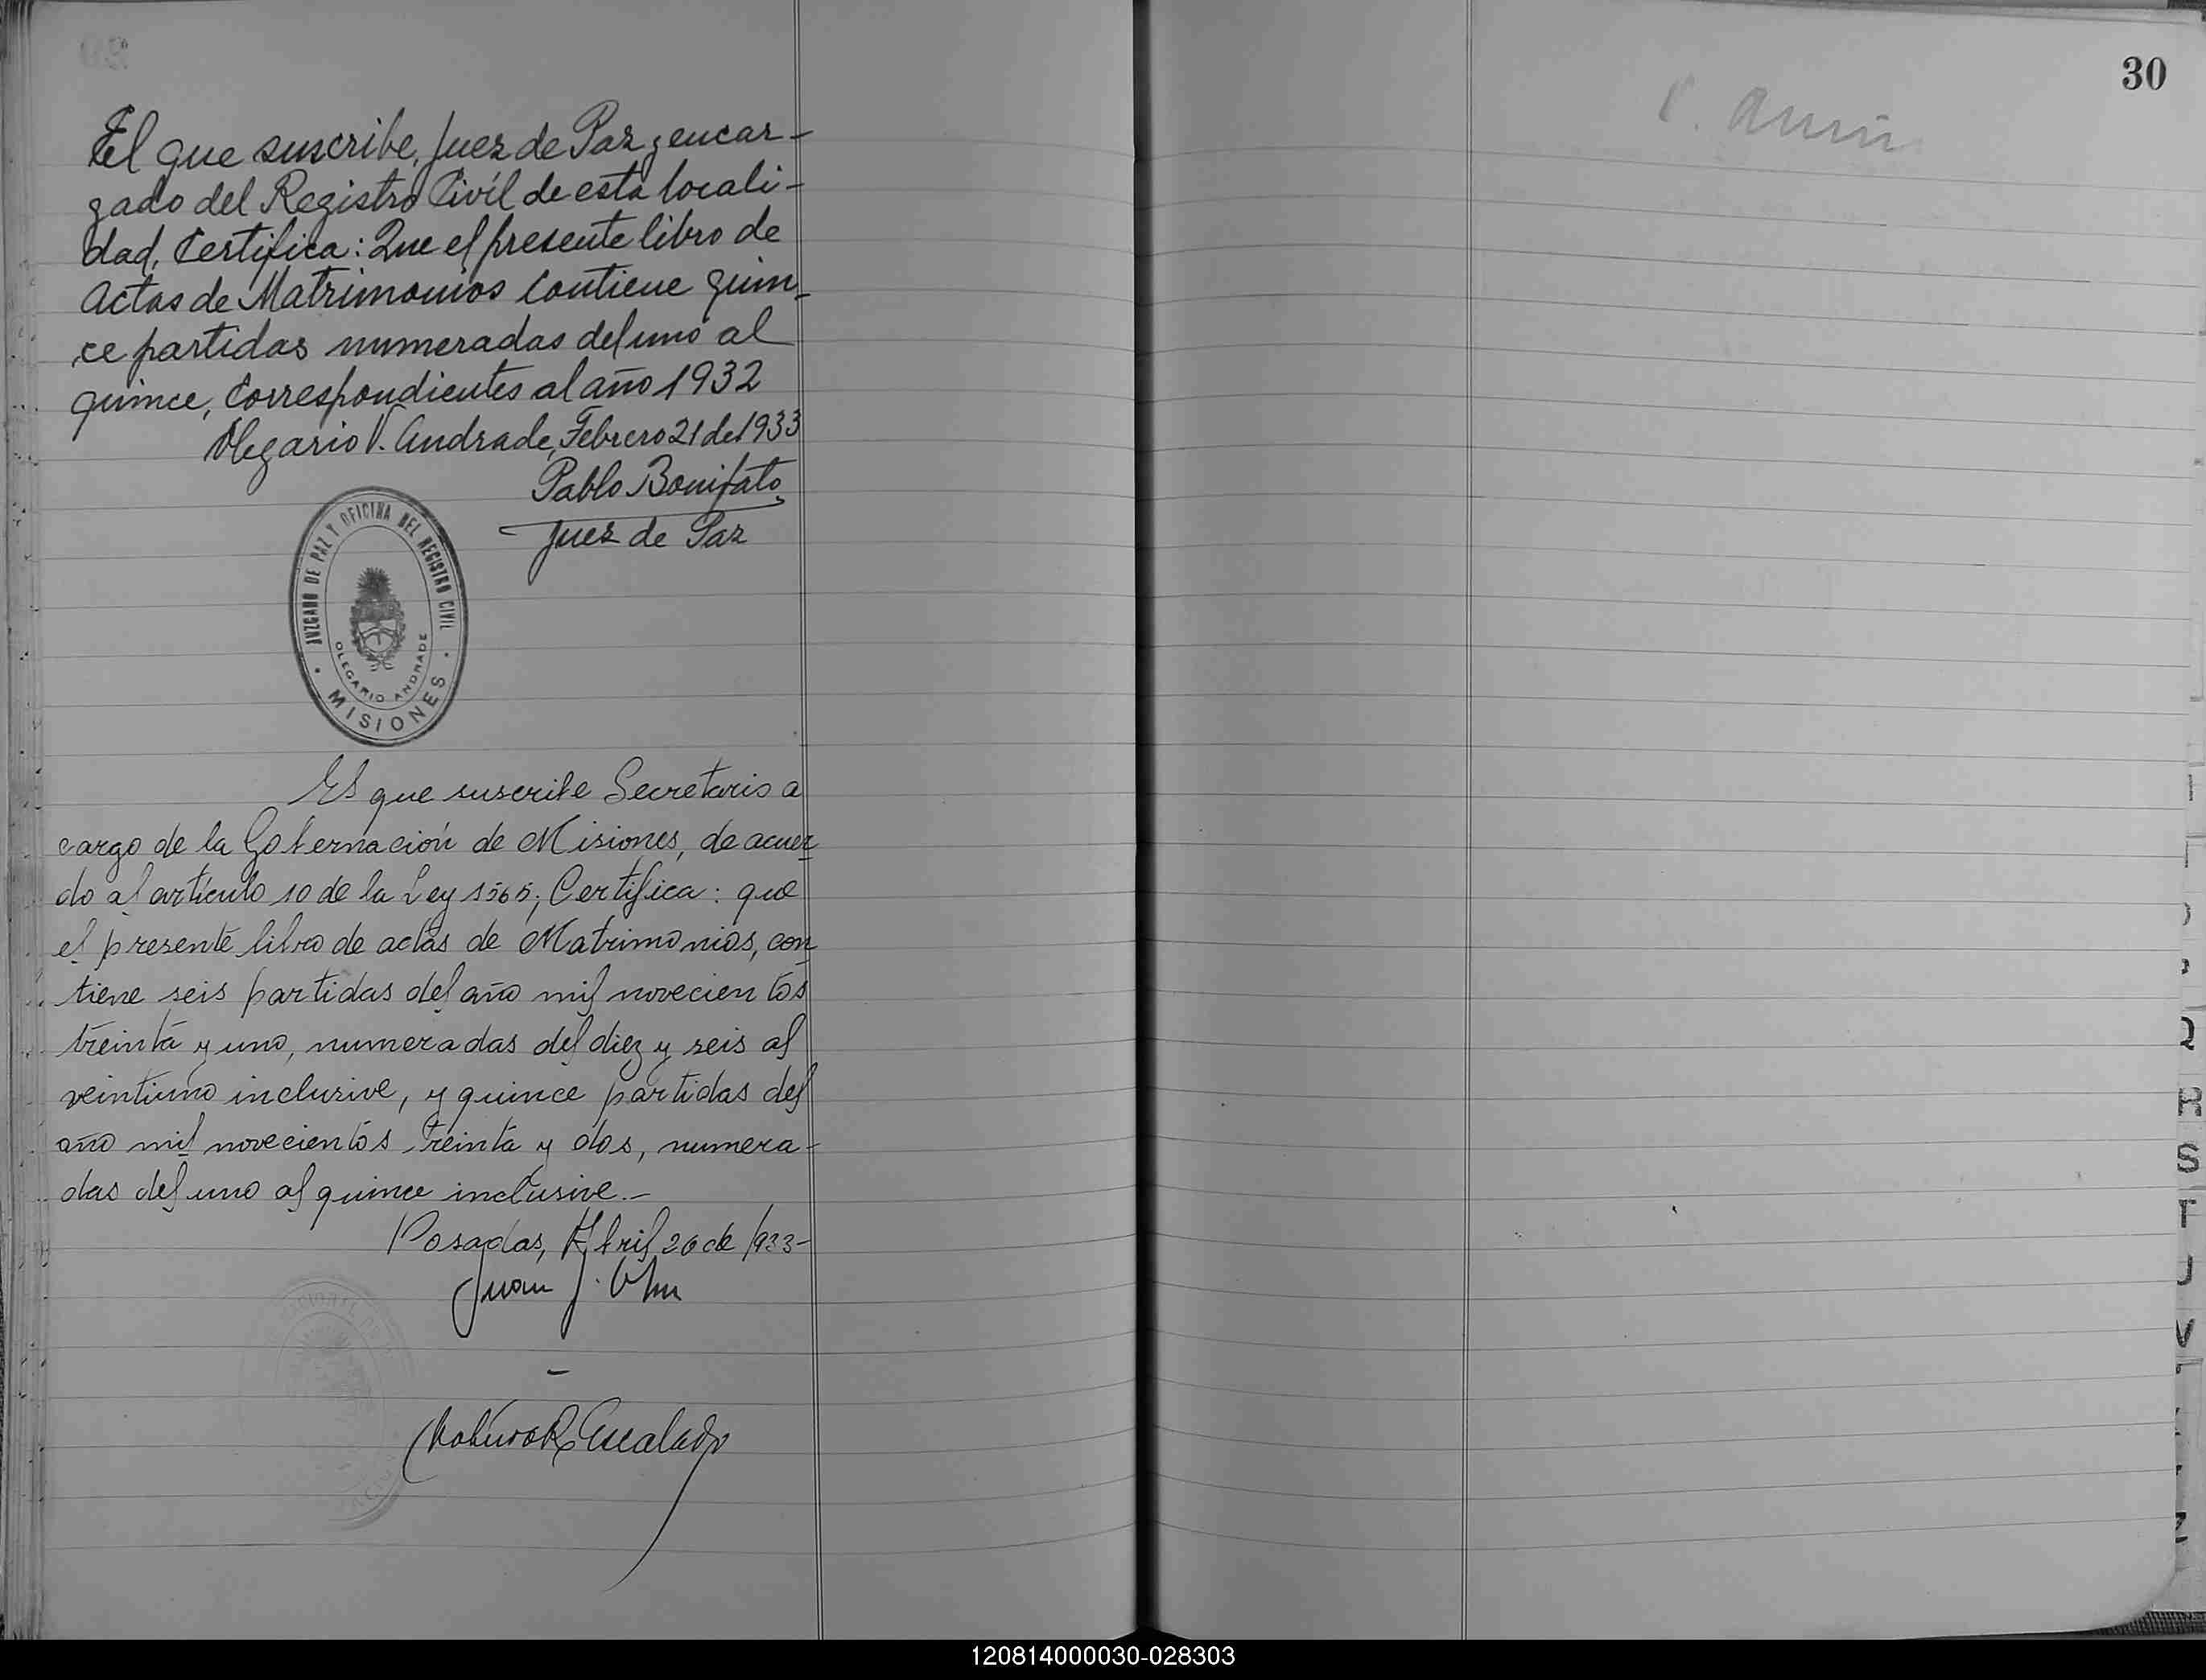 El que suscribe, Juez de Paz y encar-
gado del Registro Civil de esta locali-
dad, Certifica: Que el presente libro de
Actas de Matrimonios contiene quin-
ce partidas numeradas del uno al
quince, correspondientes al año 1932
Olegario V. Andrade, Febrero 21 de 1933
Pablo Bonifato
Juez de Paz
JUZGADO DE PAZ Y OFICINA DEL REGISTRO CIVIL
OLEGARIO ANDRADE
MISIONES
El que suscribe Secretario a
cargo de la Gobernación de Misiones, de acuer
do al artículo 10 de la Ley 1565; Certifica: que
el presente libro de actas de Matrimonios, con
tiene seis partidas del año mil novecientos
treinta y uno, numeradas del diez y seis al
veintiuno inclusive, y quince partidas del
año mil novecientos treinta y dos, numera-
das del uno al quince inclusive.-
Posadas, Abril 26 de 1933-
Juan J.
30
Q
R
S
T
U
V
Z
120814000030-028303